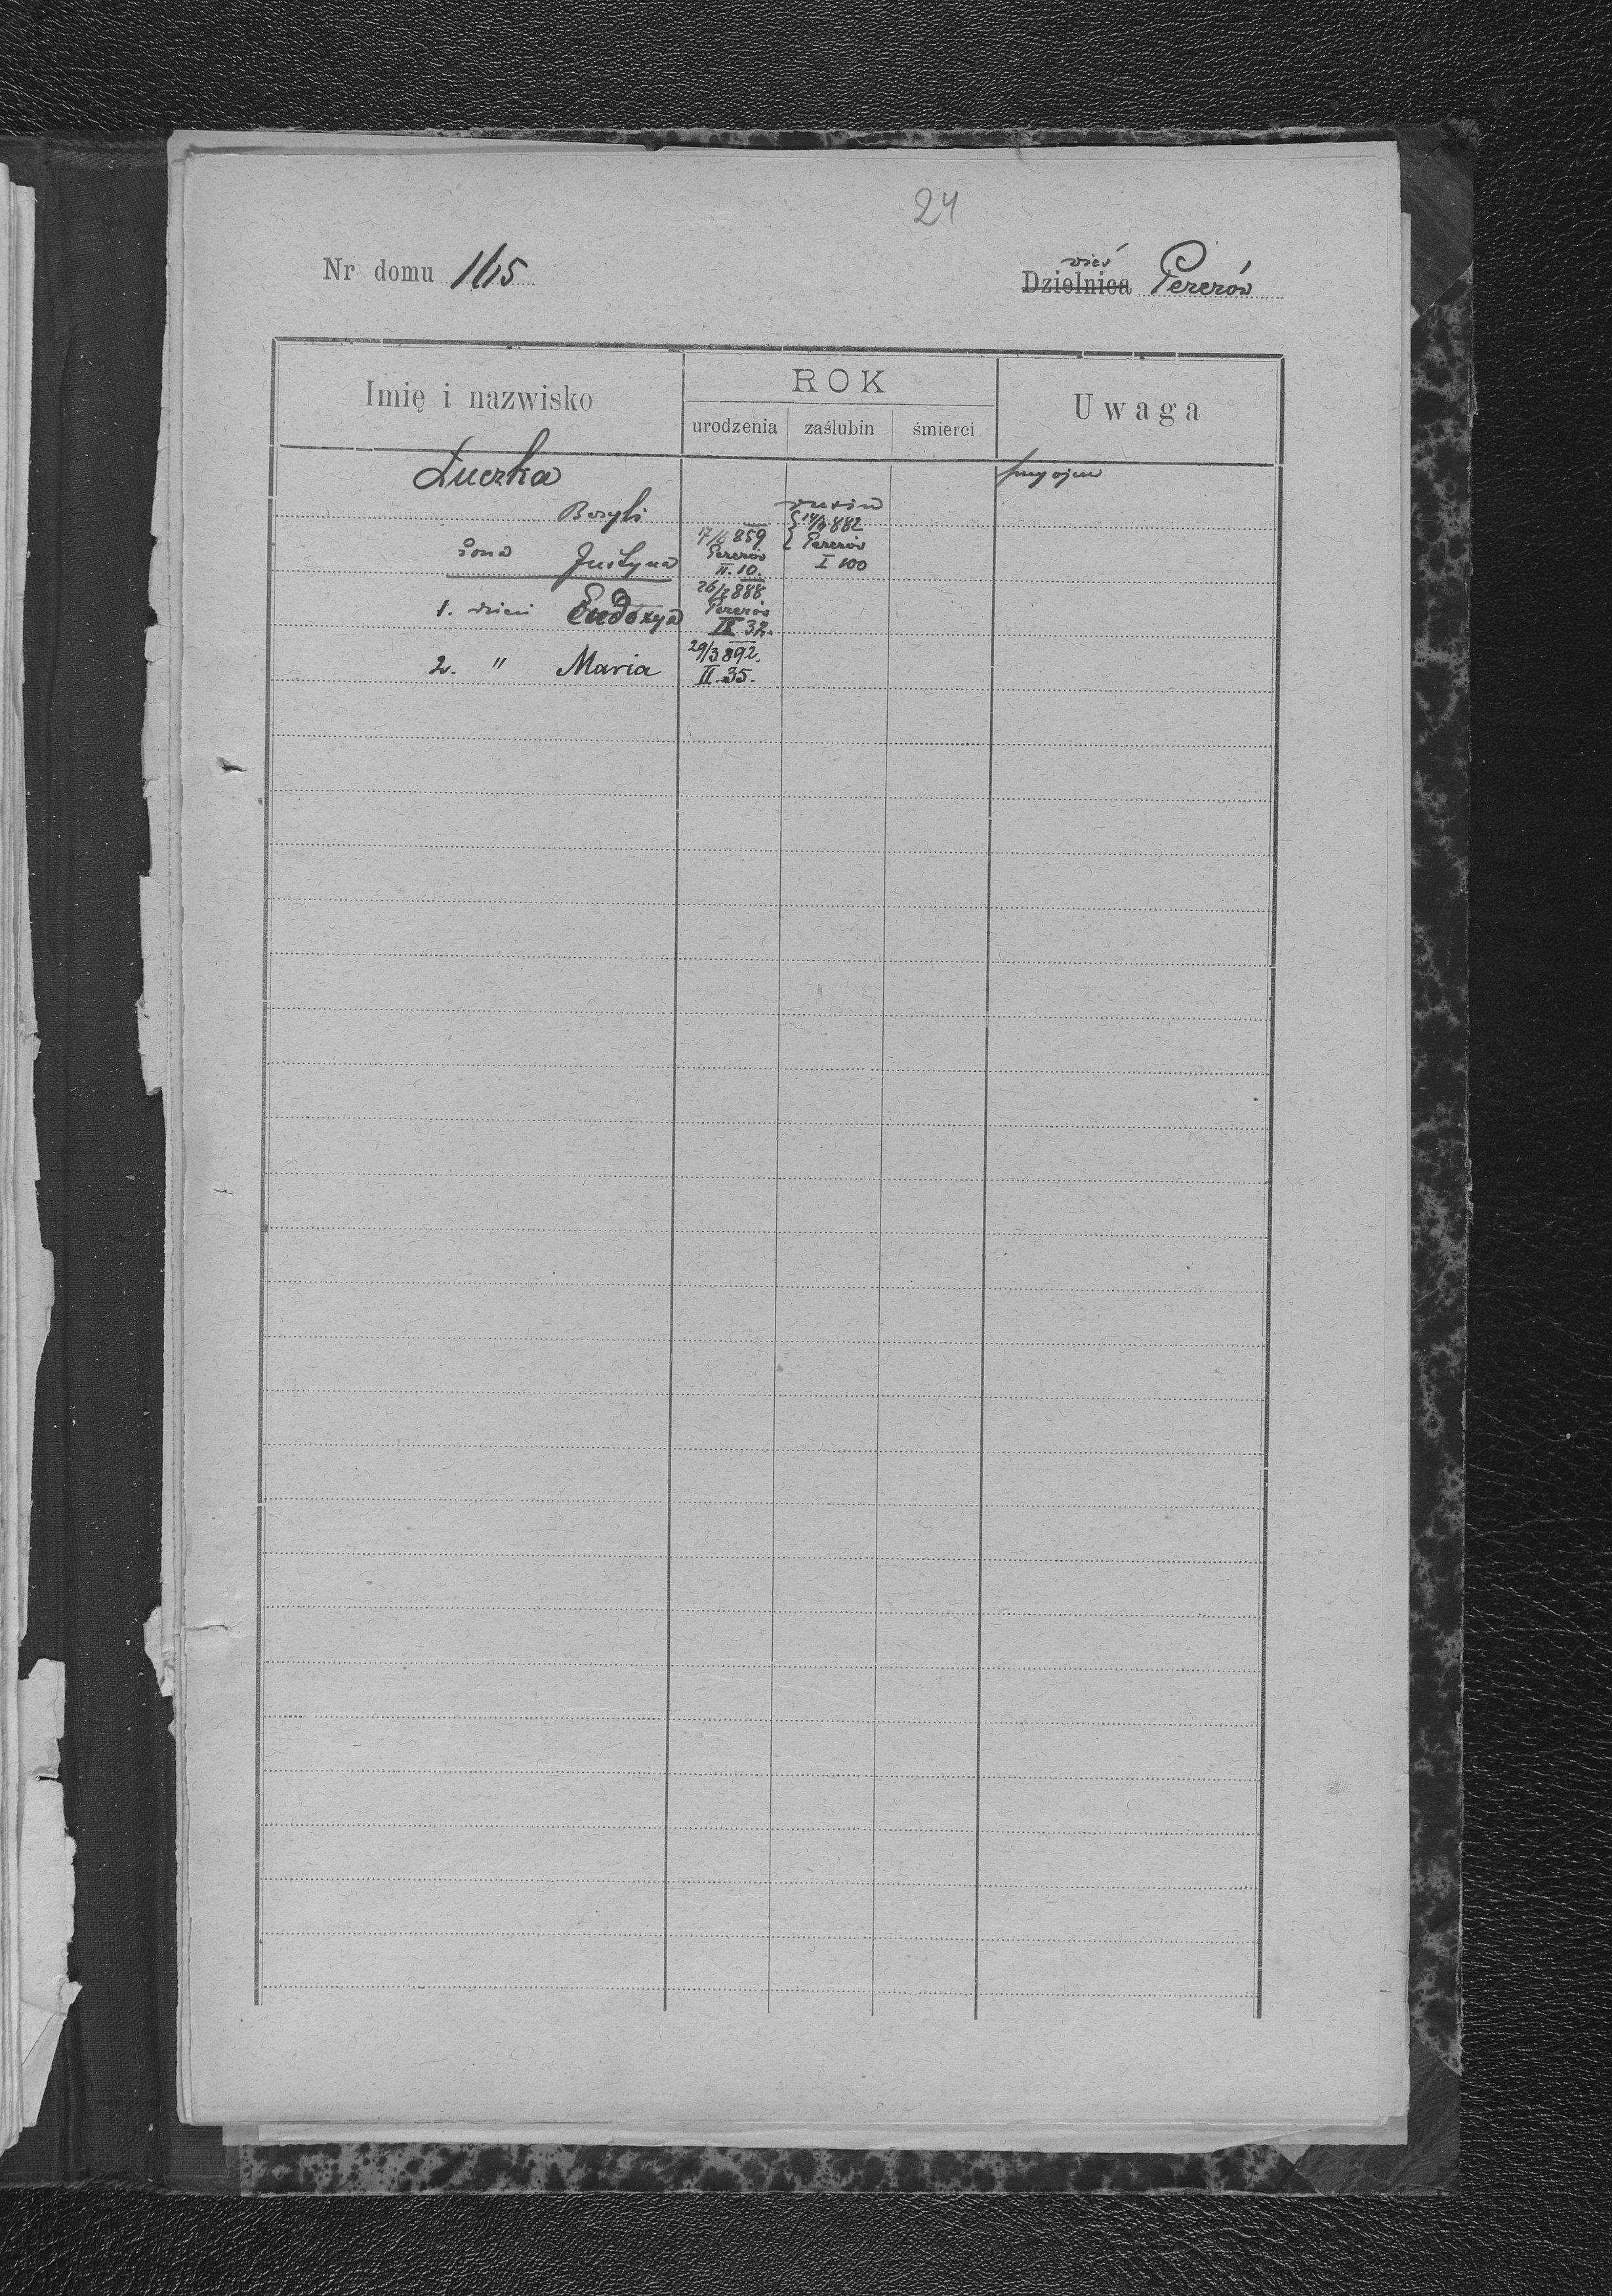 24
Nr domu 1/15
wieś
Dzielnica Pererów
Imię i nazwisko
ROK
urodzenia zaślubin śmierci
Uwaga
Łuczka
przy ojcu
Bazyli
14/9 882
Pererów
I 100
żona Justyna
17/6 859
Pererów
II. 10.
1. dzieci Eudoxya
26/2 888
Pererów
II 32.
2. " Maria
29/3 892.
II. 35.